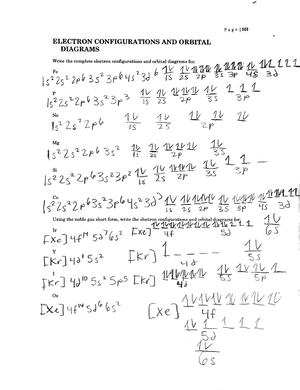 Page |101
ELECTRON CONFIGURATIONS AND ORBITAL
DIAGRAMS
Write the complete electron configurations and orbital diagrams for:
Fe
1s² 2s² 2p⁶ 3s² 3p⁶ 4s² 3d⁶ 1s 2s 2p 3s 3p 4s 3d
P
1s² 2s² 2p⁶ 3s² 3p³ 1s 2s 2p 3s 3p
Ne
1s² 2s² 2p⁶ 1s 2s 2p
Mg
1s² 2s² 2p⁶ 3s² 1s 2s 2p 3s
Si
1s² 2s² 2p⁶ 3s² 3p² 1s 2s 2p 3s 3p
Co
1s² 2s² 2p⁶ 3s² 3p⁶ 4s² 3d⁷ 1s 2s 2p 3s 3p 4s 3d
Using the noble gas short form, write the electron configurations and orbital diagrams for:
Ir
[Xe] 4f¹⁴ 5d⁷ 6s² [Xe] 4f 5d 6s
Y
[Kr] 4d¹ 5s² [Kr] 4d 5s
I
[Kr] 4d¹⁰ 5s² 5p⁵ [Kr] 4d 5s 5p
Os
[Xe] 4f¹⁴ 5d⁶ 6s² [Xe] 4f
5d
6s